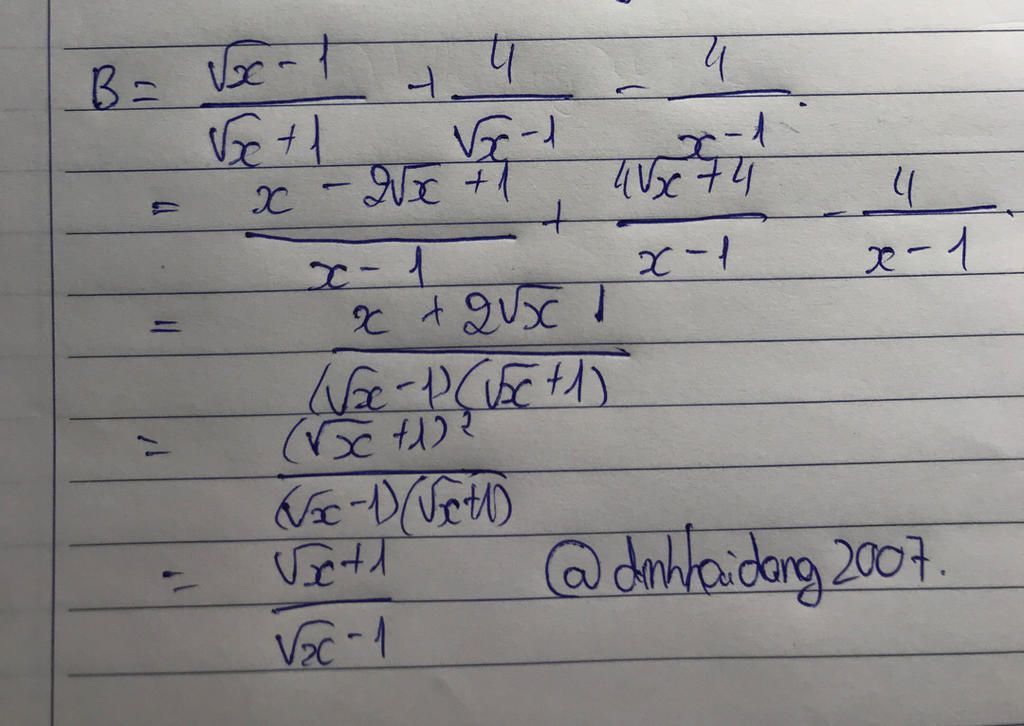 B = (√x - 1)/(√x + 1) + 4/(√x - 1) - 4/(x - 1).
= (x - 2√x + 1)/(x - 1) + (4√x + 4)/(x - 1) - 4/(x - 1).
= (x + 2√x 1)/((√x - 1)(√x + 1))
= (√x + 1)²/((√x - 1)(√x + 1))
= (√x + 1)/(√x - 1) @dinhhaidang2007.